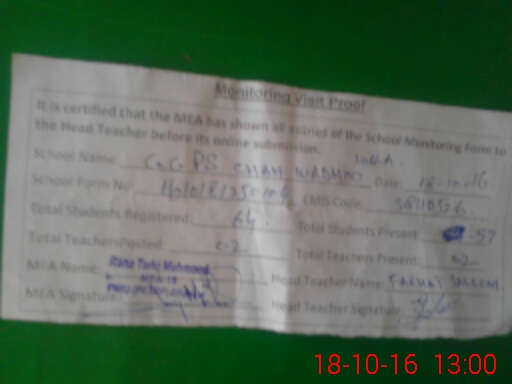 Monitoring Visit Proof
It is certified that the MEA has shown all entries of the School Monitoring Form to
the Head Teacher before its online submission.
School Name: GGPS CHAH Date: 18-10-16
School Form No EMIS Code: 38110326
Total Students Registered: 64 Total Students Present: 57
Total TeachersPosted: 02 Total Teachers Present: 02
MEA Name: Rana Tariq Mehmood Head Teacher Name: FARHAT
MEA Signature: Head Teacher Signature
18-10-16 13:00